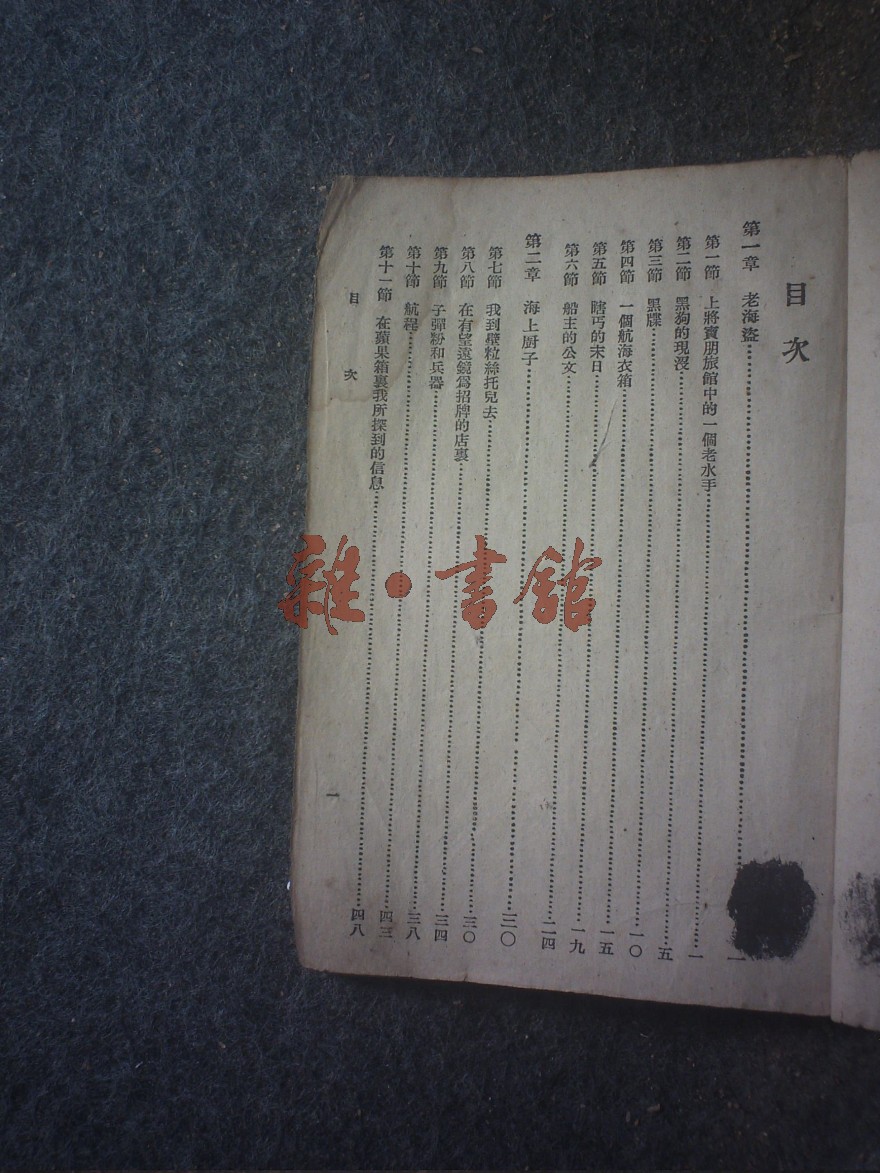 目次
第一章 老海盜……一
第一節 上將賓朋旅館中的一個老水手……一
第二節 黑狗的現沒……五
第三節 黑牒……一〇
第四節 一個航海衣箱……一五
第五節 瞎丐的末日……一九
第六節 船主的公文……二四
第二章 海上厨子……三〇
第七節 我到壁粒絲托兒去……三〇
第八節 在有望遠鏡爲招牌的店裏……三四
第九節 子彈粉和兵器……三八
第十節 航程……四三
第十一節 在蘋果箱裏我所探到的信息……四八
目次
一
雜·書館